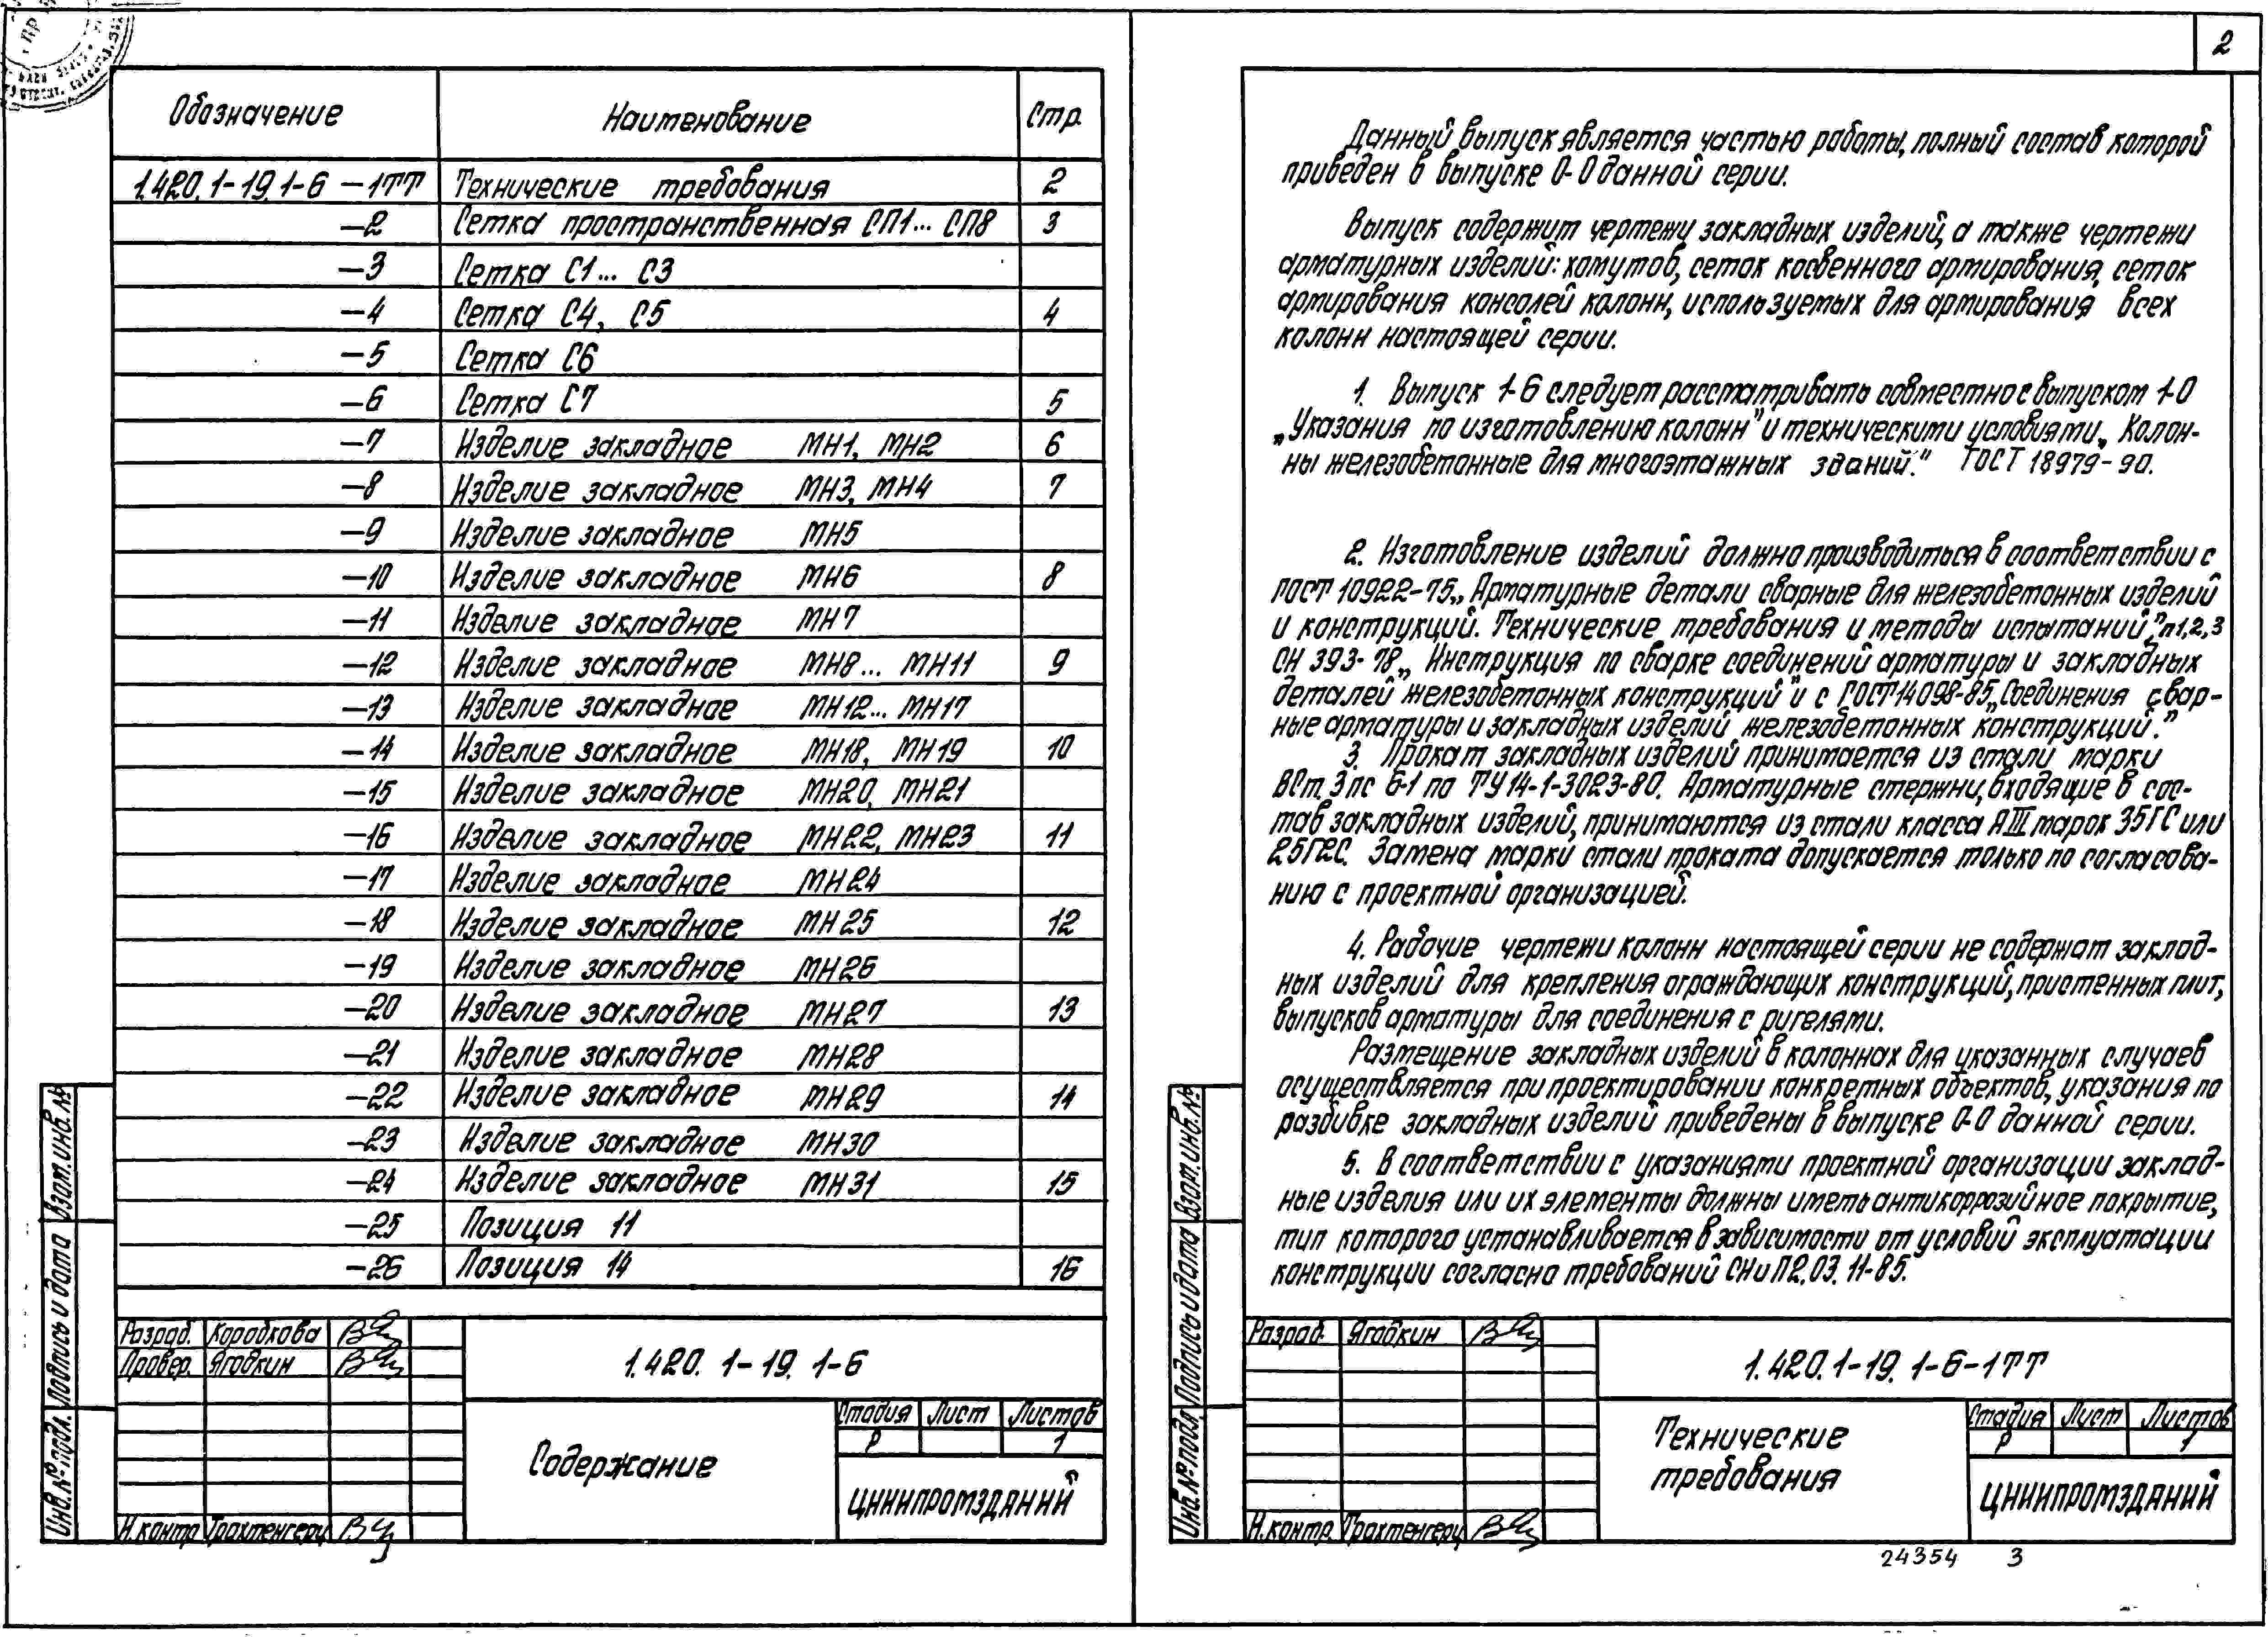 Обозначение Наименование Стр.
1.420.1-19.1-6 -1ТТ Технические требования 2
-2 Сетка пространственная СП1... СП8 3
-3 Сетка С1... С3
-4 Сетка С4, С5 4
-5 Сетка С6
-6 Сетка С7 5
-7 Изделие закладное МН1, МН2 6
-8 Изделие закладное МН3, МН4 7
-9 Изделие закладное МН5
-10 Изделие закладное МН6 8
-11 Изделие закладное МН7
-12 Изделие закладное МН8... МН11 9
-13 Изделие закладное МН12... МН17
-14 Изделие закладное МН18, МН19 10
-15 Изделие закладное МН20, МН21
-16 Изделие закладное МН22, МН23 11
-17 Изделие закладное МН24
-18 Изделие закладное МН25 12
-19 Изделие закладное МН26
-20 Изделие закладное МН27 13
-21 Изделие закладное МН28
-22 Изделие закладное МН29 14
-23 Изделие закладное МН30
-24 Изделие закладное МН31 15
-25 Позиция 11
-26 Позиция 14 16
Взам.инв.№
Подпись и дата
Инв.№ подл.
Разраб. Коробкова
Провер. Ягодкин
Н.контр. Трахтенгерц
1.420. 1-19. 1-6
Содержание
Стадия Лист Листов
Р 1
ЦНИИПРОМЗДАНИЙ
2
Данный выпуск является частью работы, полный состав которой
приведен в выпуске 0-0 данной серии.
Выпуск содержит чертежи закладных изделий, а также чертежи
арматурных изделий: хомутов, сеток косвенного армирования, сеток
армирования консолей колонн, используемых для армирования всех
колонн настоящей серии.
1. Выпуск 1-6 следует рассматривать совместно с выпуском 1-0
„Указания по изготовлению колонн" и техническими условиями „Колон-
ны железобетонные для многоэтажных зданий." ГОСТ 18979-90.
2. Изготовление изделий должно производиться в соответствии с
ГОСТ 10922-75 „Арматурные детали сварные для железобетонных изделий
и конструкций. Технические требования и методы испытаний", п1,2,3
СН 393-78 „Инструкция по сварке соединений арматуры и закладных
деталей железобетонных конструкций" и с ГОСТ 14098-85 „Соединения свар-
ные арматуры и закладных изделий железобетонных конструкций."
3. Прокат закладных изделий принимается из стали марки
ВСт.3пс 6-1 по ТУ14-1-3023-80. Арматурные стержни, входящие в сос-
тав закладных изделий, принимаются из стали класса АIII марок 35ГС или
25Г2С. Замена марки стали проката допускается только по согласова-
нию с проектной организацией.
4. Рабочие чертежи колонн настоящей серии не содержат заклад-
ных изделий для крепления ограждающих конструкций, пристенных плит,
выпусков арматуры для соединения с ригелями.
Размещение закладных изделий в колоннах для указанных случаев
осуществляется при проектировании конкретных объектов, указания по
разбивке закладных изделий приведены в выпуске 0-0 данной серии.
5. В соответствии с указаниями проектной организации заклад-
ные изделия или их элементы должны иметь антикоррозийное покрытие,
тип которого устанавливается в зависимости от условий эксплуатации
конструкции согласно требований СНиП 2.03.11-85.
Взам.инв.№
Подпись и дата
Инв.№ подл.
Разраб. Ягодкин
Н.контр. Трахтенгерц
1.420.1-19.1-6-1ТТ
Технические
требования
Стадия Лист Листов
Р 1
ЦНИИПРОМЗДАНИЙ
24354 3